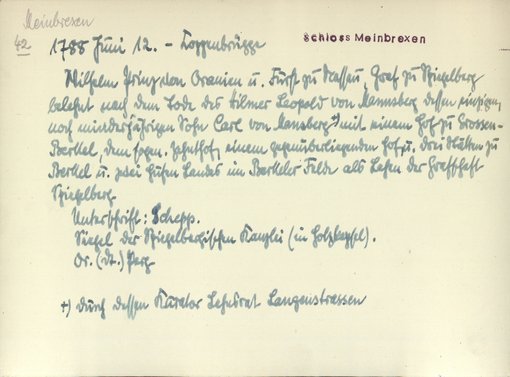 Meinbrexen
42
1788 Juni 12. - Coppenbrügge
Schloss Meinbrexen
Wilhelm Prinz von Oranien u. Fürst zu Nassau, Graf zu Spiegelberg
belehnt nach dem Tode des Hilmer Leopold von Mannsberg dessen einzigen,
noch minderjährigen Sohn Carl von Mansberg +) mit einem Hof zu Grossen-
Berkel, dem sogen. Zehnthof, einem gegenüberliegenden Hof, u. drei Stätten zu
Berkel u. zwei Hufen Landes im Berkeler Felde als Lehen der Grafschaft
Spiegelberg.
Unterschrift: Schepp.
Siegel der Spiegelbergischen Kanzlei (in Holzkapsel).
Or. (dt.) Perg.
+) durch dessen Kurator Lehnsrat Langenstrassen